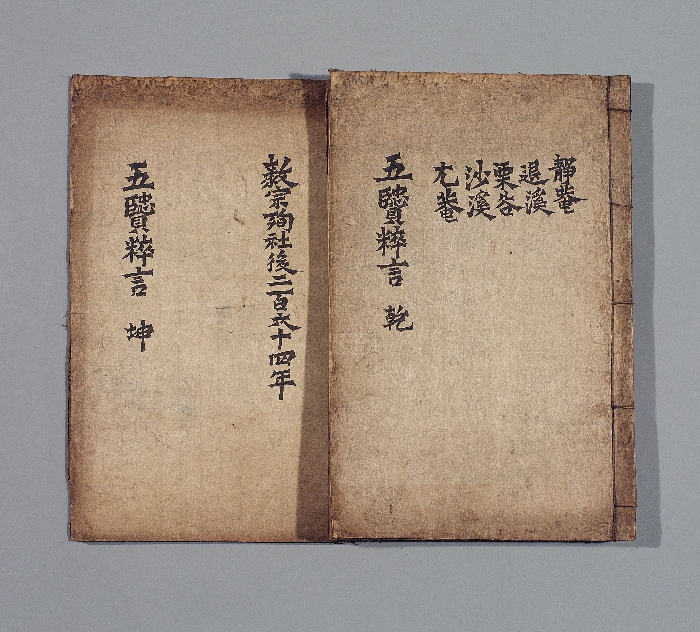 靜菴
退溪
栗谷
沙溪
尤菴
五賢粹言 乾
毅宗殉社後二百六十四年
五賢粹言 坤